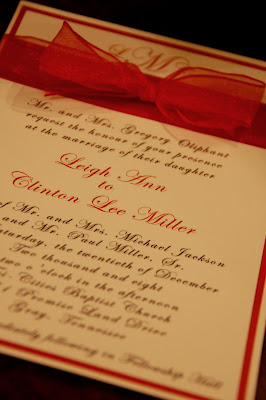 M
Mr. and Mrs. Gregory Oliphant
request the honour of your presence
at the marriage of their daughter
Leigh Ann
to
Clinton Lee Miller
of Mr. and Mrs. Michael Jackson
and Mr. Paul Miller, Sr.
Saturday, the twentieth of December
Two thousand and eight
two o'clock in the afternoon
Cities Baptist Church
Promise Land Drive
Gray, Tennessee
following in Fellowship Hall